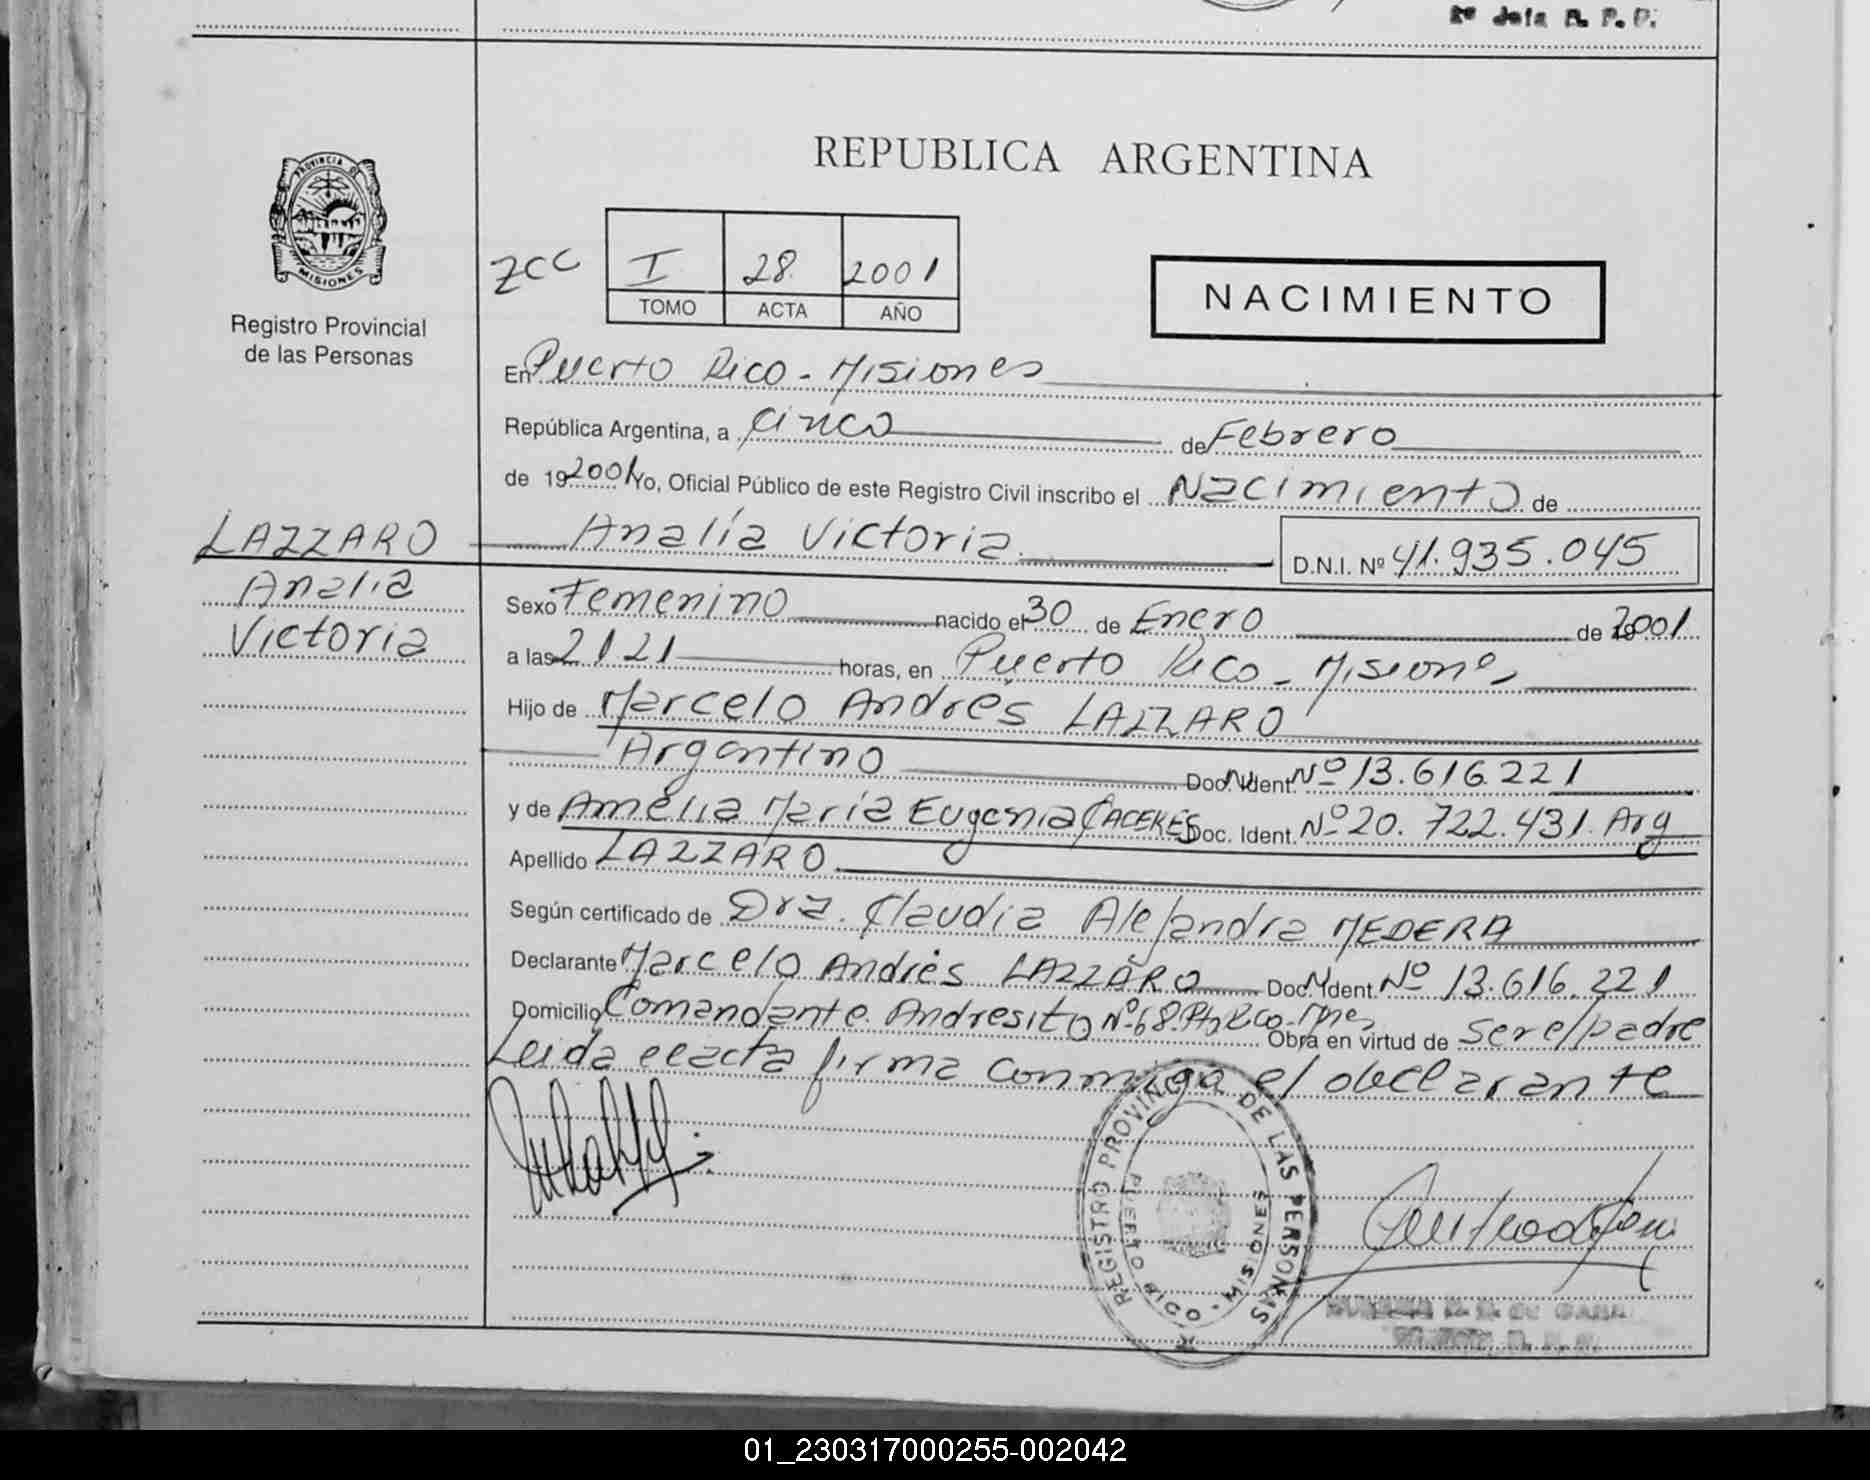 2º Jefe R. P. P.
REPUBLICA ARGENTINA
PROVINCIA DE MISIONES
Registro Provincial
de las Personas
ZCC
I 28 2001
TOMO ACTA AÑO
NACIMIENTO
En Puerto Rico - Misiones
República Argentina, a cinco de Febrero
de 19 2001 Yo, Oficial Público de este Registro Civil inscribo el Nacimiento de
LAZZARO
Analia
Victoria
Analía Victoria D.N.I. Nº 41.935.045
Sexo Femenino nacido el 30 de Enero de 19 2001
a las 2121 horas, en Puerto Rico - Misiones
Hijo de Marcelo Andrés LAZZARO
Argentino Doc. Ident. Nº 13.616.221
y de Amelia María Eugenia CACERES Doc. Ident. Nº 20.722.431. Arg
Apellido LAZZARO
Según certificado de Dra. Claudia Alejandra MEDERA
Declarante Marcelo Andrés LAZZARO Doc. Ident. Nº 13.616.221
Domicilio Comandante Andresito Nº 68. Pto Rco. Mnes Obra en virtud de ser el padre
Leida el acta firma conmigo el declarante
REGISTRO PROVINCIAL DE LAS PERSONAS
PUERTO RICO - MISIONES
01_230317000255-002042